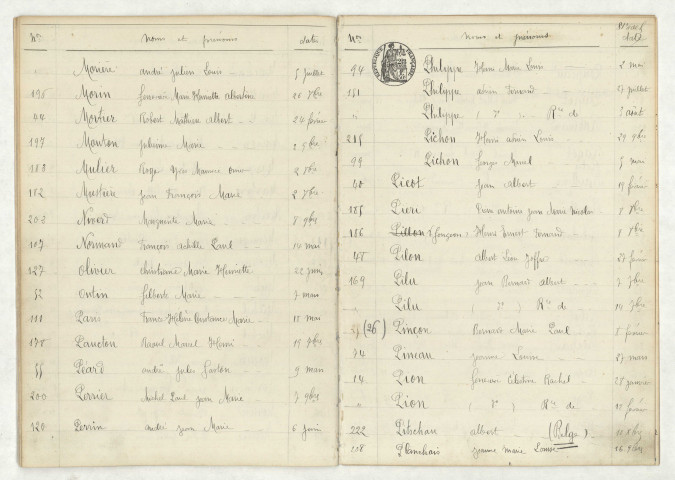 Nos Noms et prénoms Date
" Morière André Julien Louis 5 juillet
196 Morin Marie Henriette Albertine 26 7bre
44 Mortier Robert Mathieu Albert 24 février
197 Mouton Julienne Marie 2 9bre
188 Mulier Roger Maurice
182 Mustière Jean François Marie 2 7bre
203 Marguerite Marie 8 9bre
107 Normand François Achille Paul 14 mai
127 Olivier Christiane Marie Henriette 22 juin
52 Gilberte Marie 7 mars
111 Paris France Hélène Constance Marie 18 mai
178 Raoul Marcel Henri
55 Péard André Jules Gaston 9 mars
200 Perrier Michel Paul Jean Marie 7 9bre
120 Perrin André Jean Marie 6 juin
Nos Noms et prénoms
94 Philippe Henri Marie Louis 2 mai
151 Philippe Adrien Fernand 27 juillet
" Philippe ( do ) Ron de 3 août
215 Pichon Henri Adrien Louis 29 9bre
99 Pichon Georges Marcel 5 mai
40 Picot Jean Albert 19 février
185 Pieri Antoine Jean Marie Nicolas 8 7bre
186 Pillon Ernest Fernand 8 7bre
45 Pilon Albert Léon Joffre 27 février
169 Pilu Jean Bernard Albert 7 7bre
" Pilu ( do ) Ron de 14 7bre
(26) Pinçon Bernard Marie Paul 5 février
74 Pineau Jeanne Louise 27 mars
14 Pion Germaine Célestine Rachel 25 janvier
" Pion ( do ) Ron de 15 février
222 Pitschau Albert (Belge)
108 Planchais Jeanne Marie Louise 16 mai